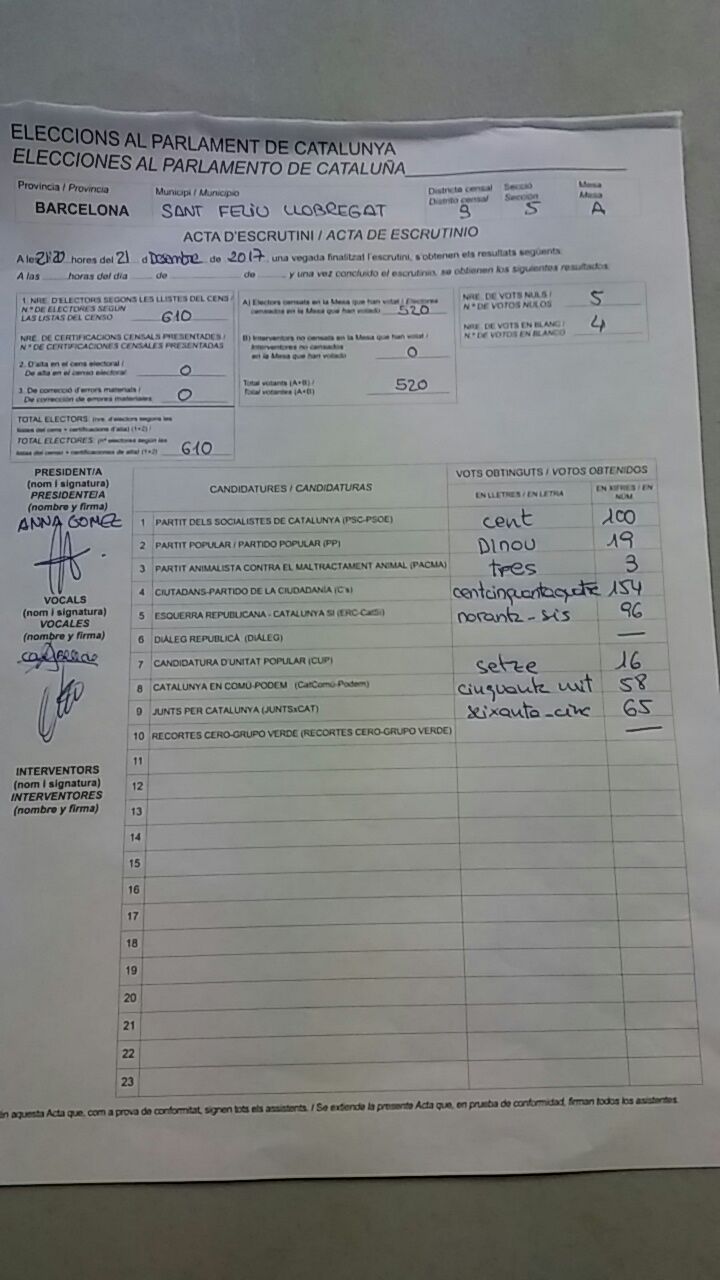 ELECCIONS AL PARLAMENT DE CATALUNYA
ELECCIONES AL PARLAMENTO DE CATALUÑA
Provincia / Provincia
BARCELONA
Municipi / Municipio
SANT FELIU LLOBREGAT
Districte censal
Distrito censal
9
Secció
Sección
5
Mesa
Mesa
A
ACTA D'ESCRUTINI / ACTA DE ESCRUTINIO
A les 21:20 hores del 21 d Desembre de 2017, una vegada finalitzat l'escrutini, s'obtenen els resultats següents:
A las horas del día de de y una vez concluido el escrutinio, se obtienen los siguientes resultados:
1. NRE. D'ELECTORS SEGONS LES LLISTES DEL CENS /
N.º DE ELECTORES SEGÚN
LAS LISTAS DEL CENSO 610
NRE. DE CERTIFICACIONS CENSALS PRESENTADES /
N.º DE CERTIFICACIONES CENSALES PRESENTADAS
2. D'alta en el cens electoral /
De alta en el censo electoral 0
3. De correcció d'errors materials /
De corrección de errores materiales 0
TOTAL ELECTORS: (nre. d'electors segons les
llistes del cens + certificacions d'alta) (1+2) /
TOTAL ELECTORES: (nº electores según las
listas del censo + certificaciones de alta) (1+2) 610
A) Electors censats en la Mesa que han votat / Electores
censados en la Mesa que han votado 520
B) Interventors no censats en la Mesa que han votat /
Interventores no censados
en la Mesa que han votado 0
Total votants (A+B) /
Total votantes (A+B) 520
NRE. DE VOTS NULS /
N.º DE VOTOS NULOS 5
NRE. DE VOTS EN BLANC /
N.º DE VOTOS EN BLANCO 4
PRESIDENT/A
(nom i signatura)
PRESIDENTE/A
(nombre y firma)
ANNA GOMEZ
VOCALS
(nom i signatura)
VOCALES
(nombre y firma)
INTERVENTORS
(nom i signatura)
INTERVENTORES
(nombre y firma)
CANDIDATURES / CANDIDATURAS
VOTS OBTINGUTS / VOTOS OBTENIDOS
EN LLETRES / EN LETRA
EN XIFRES / EN NÚM.
1 PARTIT DELS SOCIALISTES DE CATALUNYA (PSC-PSOE) cent 100
2 PARTIT POPULAR / PARTIDO POPULAR (PP) DINOU 19
3 PARTIT ANIMALISTA CONTRA EL MALTRACTAMENT ANIMAL (PACMA) tres 3
4 CIUTADANS-PARTIDO DE LA CIUDADANÍA (C's) centcinquantaquatre 154
5 ESQUERRA REPUBLICANA - CATALUNYA SÍ (ERC-CatSí) noranta-sis 96
6 DIÀLEG REPUBLICÀ (DIÀLEG) —
7 CANDIDATURA D'UNITAT POPULAR (CUP) setze 16
8 CATALUNYA EN COMÚ-PODEM (CatComú-Podem) cinquanta vuit 58
9 JUNTS PER CATALUNYA (JUNTSxCAT) seixanta-cinc 65
10 RECORTES CERO-GRUPO VERDE (RECORTES CERO-GRUPO VERDE) —
11
12
13
14
15
16
17
18
19
20
21
22
23
én aquesta Acta que, com a prova de conformitat, signen tots els assistents. / Se extiende la presente Acta que, en prueba de conformidad, firman todos los asistentes.